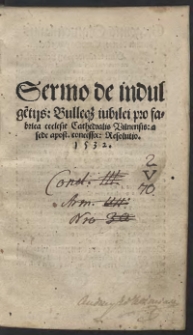 Sermo de indul
gẽtijs: Bulleqꝫ iubilei pro fa-
brica ecclesie Cathedralis Vilnensis: a
sede apost. concesse: Resolutio.
1532.
2
V
70
Cond. III.
Arm. III
Nro 30